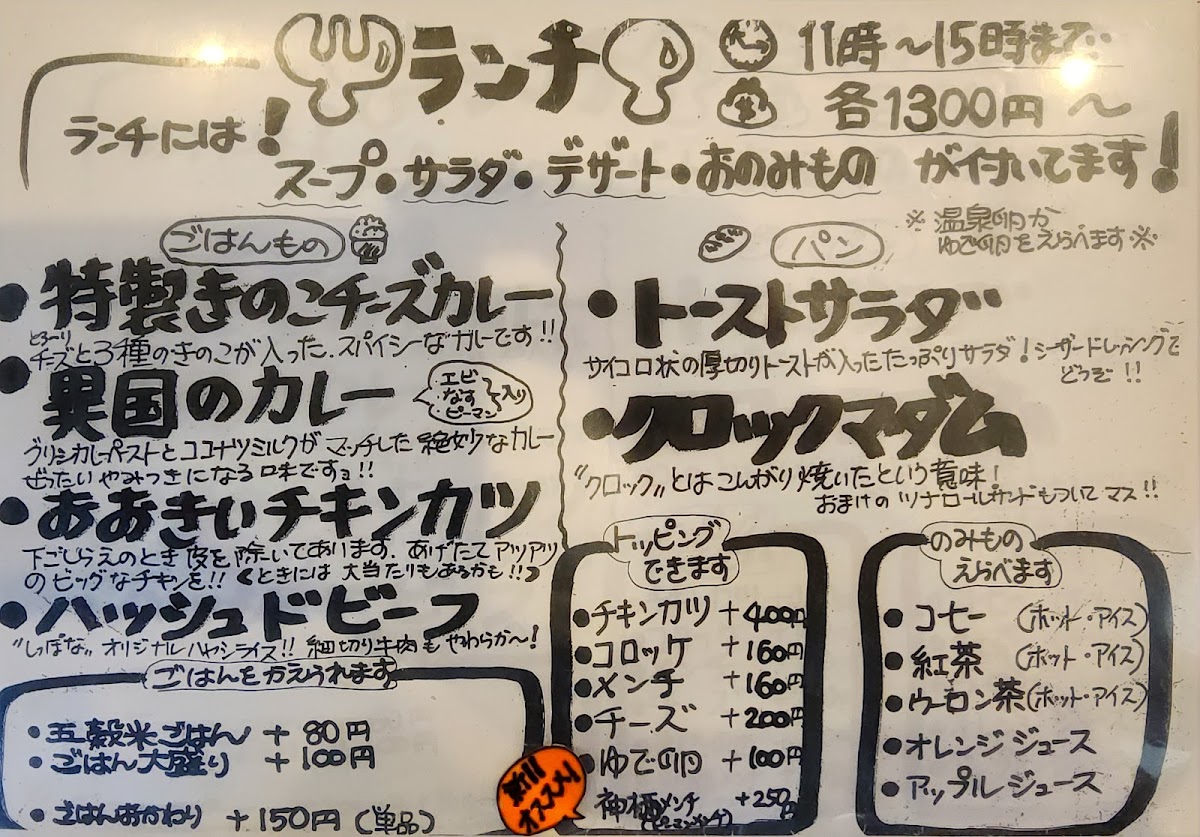 ランチ
11時〜15時まで
各1300円〜
ランチには!
スープ・サラダ・デザート・おのみもの が付いてます!
ごはんもの
・特製きのこチーズカレー
とろーり
チーズと3種のきのこが入った、スパイシーなカレーです!!
・異国のカレー
エビ
なす
ピーマン
入り
グリーンカレーペーストとココナツミルクがマッチした絶妙なカレー
ぜったいやみつきになる味ですョ!!
・おおきぃチキンカツ
下ごしらえのとき皮を除いてあります。あげたてアツアツ
のビッグなチキンを!! (ときには大当たりもあるかも!!)
・ハッシュドビーフ
"しっぽな"オリジナルハヤシライス!! 細切り牛肉もやわらか〜!
ごはんをかえられます
・五穀米ごはん +80円
・ごはん大盛り +100円
・ごはんおかわり +150円(単品)
パン
※温泉卵か
ゆで卵をえらべます※
・トーストサラダ
サイコロ状の厚切りトーストが入ったたっぷりサラダ!シーザードレッシングで
どうぞ!!
・クロックマダム
"クロック"とはこんがり焼いたという意味!
おまけのツナロールサンドもついてマス!!
トッピング
できます
・チキンカツ +400円
・コロッケ +160円
・メンチ +160円
・チーズ +200円
・ゆで卵 +100円
神極メンチ +250円
(ピーマンメンチ)
オススメ!
のみもの
えらべます
・コーヒー (ホット・アイス)
・紅茶 (ホット・アイス)
・ウーロン茶(ホット・アイス)
・オレンジジュース
・アップルジュース